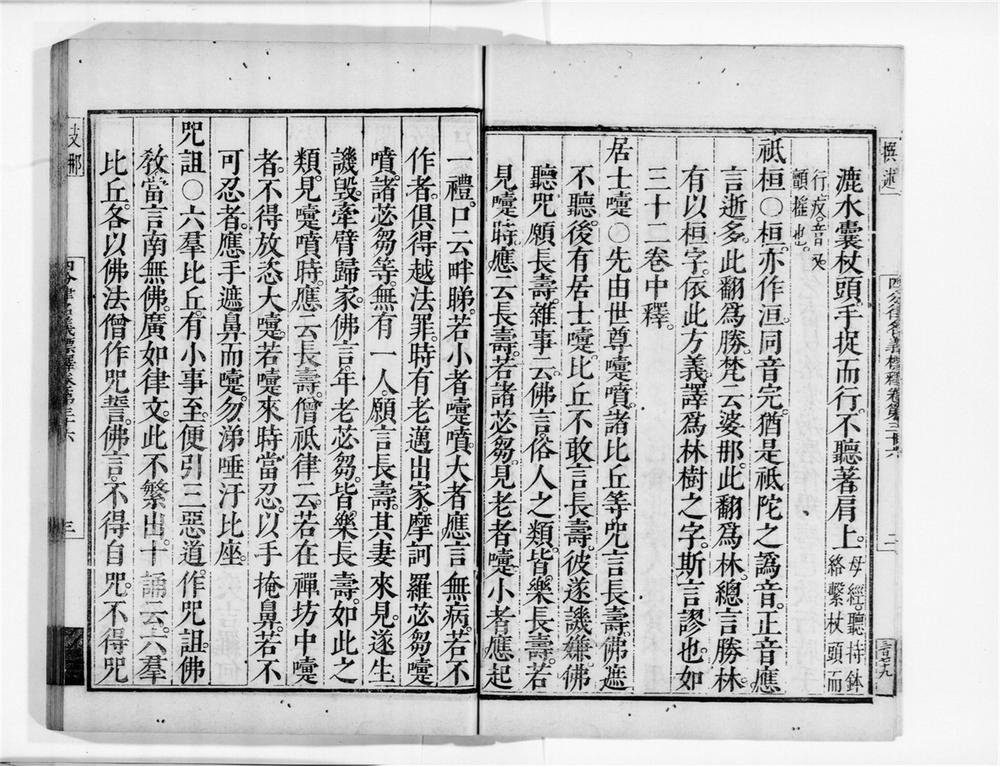 漉水囊杖頭。手捉而行。不聽著肩上。母經。聽持鉢絡繫杖頭而
行。疫。音炎顫摧也。
祇桓〇桓。亦作洹。同音完。猶是祇陀之譌音。正音應
言逝多。此翻爲勝。梵云婆那。此翻爲林。總言勝林。
有以桓字。依此方義。譯爲林樹之字。斯言謬也。如
三十二卷中釋。
居士嚏〇先由世尊嚏噴。諸比丘等咒言長壽。佛遮
不聽。後有居士嚏。比丘不敢言長壽。彼遂譏嫌。佛
聽咒願長壽。雜事云。佛言。俗人之類。皆樂長壽。若
見嚏時。應云長壽。若諸苾芻。見老者嚏。小者應起
一禮。口云畔睇。若小者嚏噴。大者應言無病。若不
作者。俱得越法罪。時有老邁出家。摩訶羅苾芻嚏
噴。諸苾芻等。無有一人。願言長壽。其妻來見。遂生
譏毀。牽臂歸家。佛言。年老苾芻。皆樂長壽。如此之
類。見嚏噴時。應云長壽。僧祇律云。若在禪坊中嚏
者。不得放恣大嚏。若嚏來時當忍。以手掩鼻。若不
可忍者。應手遮鼻而嚏。勿涕唾汙比座。
咒詛〇六羣比丘。有小事至。便引三惡道。作咒詛。佛
敎當言南無佛。廣如律文。此不繁出。十誦云。六羣
比丘。各以佛法僧作咒誓。佛言。不得自咒。不得咒
四分律名義標釋卷第三十六
二
三